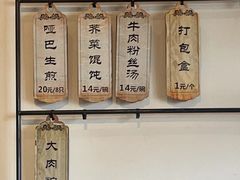 哑巴生煎
20元/8只
荠菜馄饨
14元/碗
牛肉粉丝汤
14元/碗
打包盒
1元/个
大肉